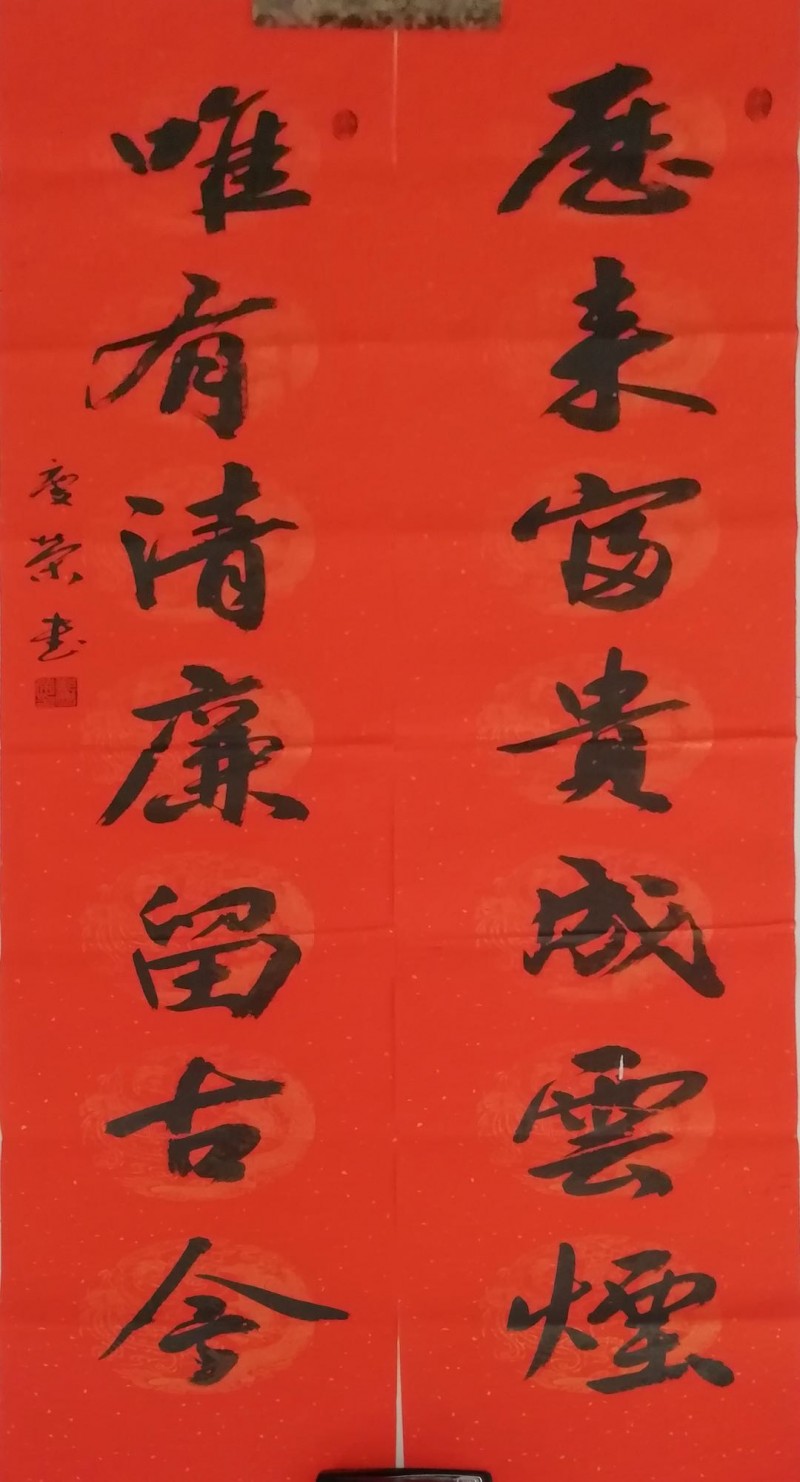 歷来富貴成雲煙
唯有清廉留古今
慶荣书